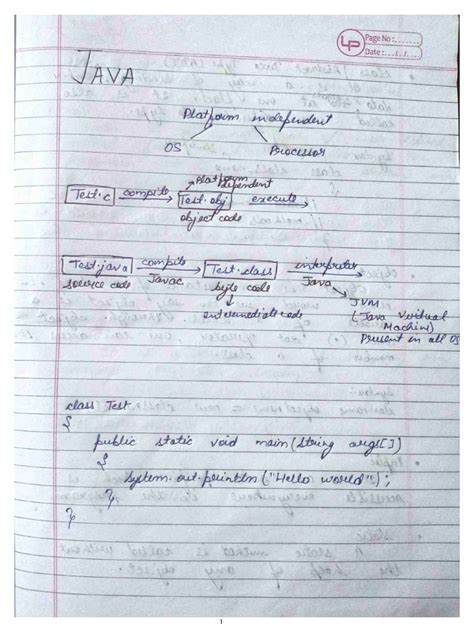 LP
Page No :
Date : / /
JAVA
Platform independent
OS Processor
Platform dependent
Test.c compile Test.obj execute
object code
Test.java compile Test.class interpreter
source code Javac byte code Java
intermediate code JVM
(Java Virtual Machine)
Present in all OS
class Test
{
public static void main(String args[])
{
System.out.println("Hello world");
}
}
1